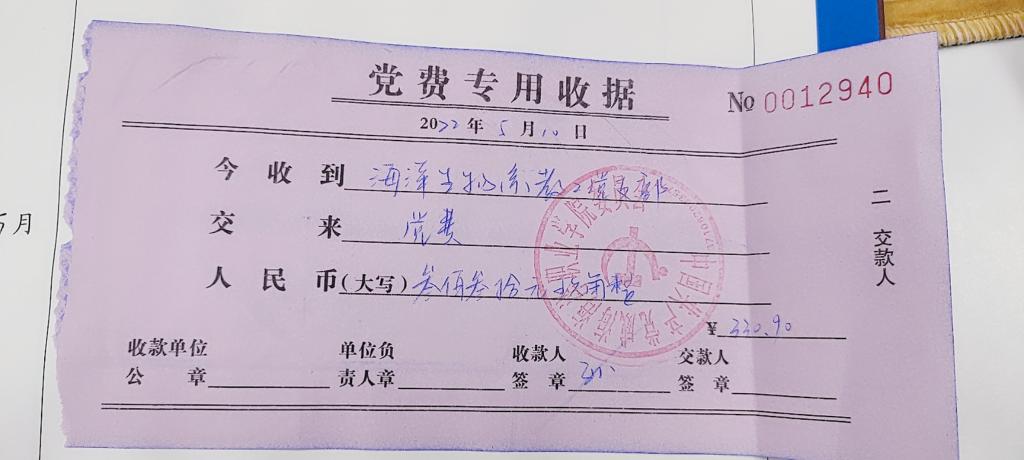 党费专用收据
No 0012940
2022年5月10日
今收到 海洋生物系教工党支部
交来 党费
人民币(大写) 叁佰叁拾元玖角整
¥ 330.90
收款单位公章
单位负责人章
收款人签章
交款人签章
二 交款人
5月